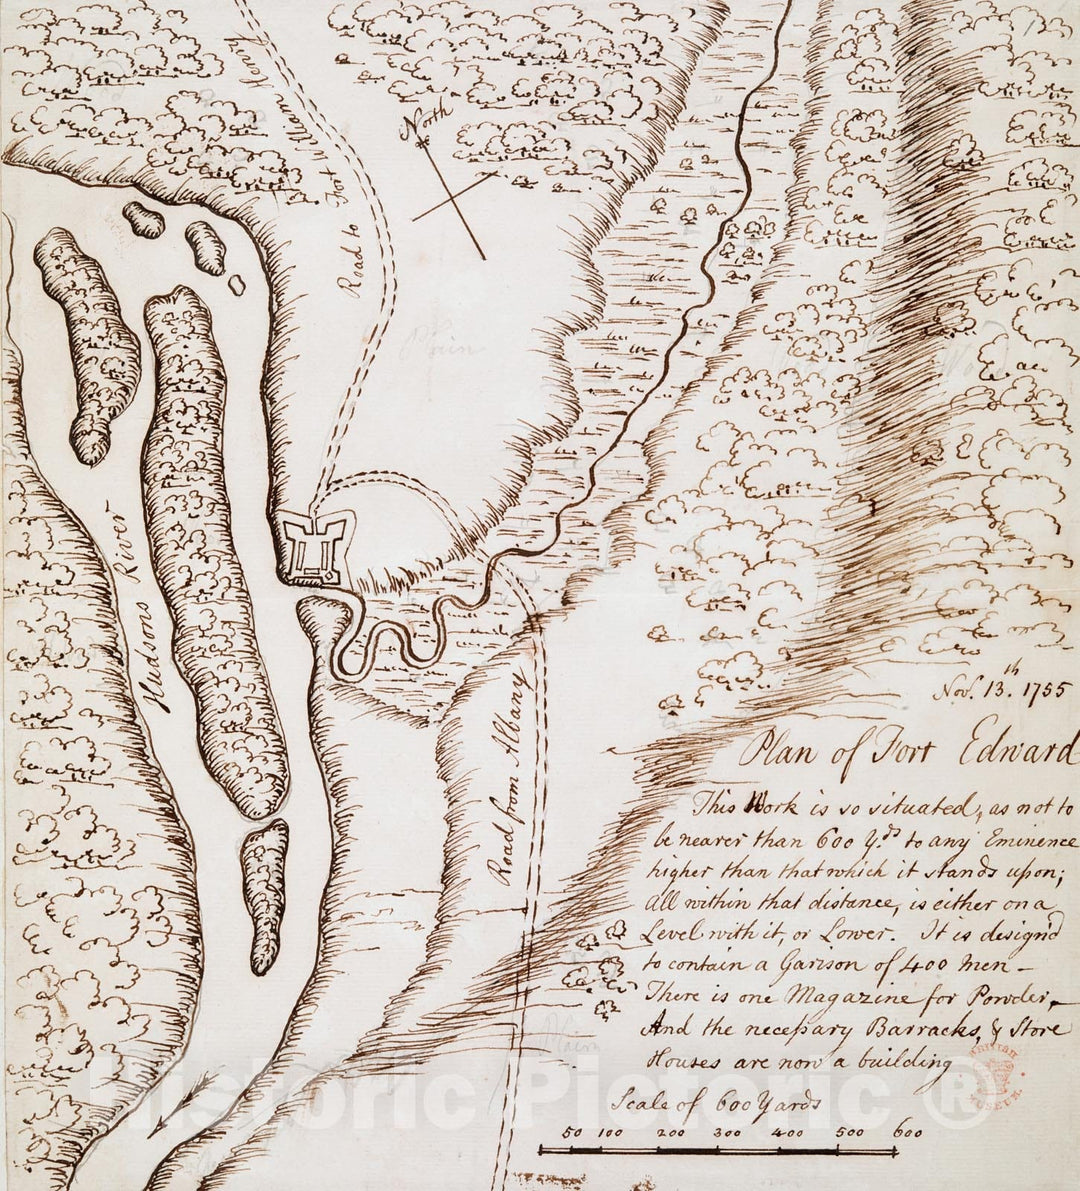 Road to Fort William Henry
North
Plain
Wood
Hudsons River
Road from Albany
Nov.r 13.th 1755
Plan of Fort Edward
This Work is so situated, as not to
be nearer than 600 Y.ds to any Eminence
higher than that which it stands upon;
all within that distance, is either on a
Level with it, or Lower. It is design'd
to contain a Garison of 400 men -
There is one Magazine for Powder,
And the necessary Barracks, & Store
Houses are now a building
Plain
Scale of 600 Yards
50 100 200 300 400 500 600
BRITISH MUSEUM
Historic Pictoric ®